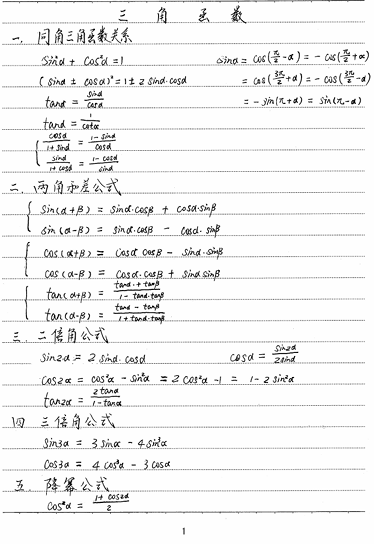 三角函数
一. 同角三角函数关系
sin²α + cos²α = 1    sinα = cos(π/2 - α) = - cos(π/2 + α)
(sinα ± cosα)² = 1 ± 2 sinα·cosα    = cos(3π/2 + α) = - cos(3π/2 - α)
tanα = sinα/cosα    = - sin(π+α) = sin(π-α)
tanα = 1/cotα
{ cosα/(1+sinα) = (1-sinα)/cosα
sinα/(1+cosα) = (1-cosα)/sinα
二. 两角和差公式
{ sin(α+β) = sinα·cosβ + cosα·sinβ
sin(α-β) = sinα·cosβ - cosα·sinβ
{ cos(α+β) = cosα cosβ - sinα·sinβ
cos(α-β) = cosα·cosβ + sinα sinβ
{ tan(α+β) = (tanα + tanβ)/(1 - tanα·tanβ)
tan(α-β) = (tanα - tanβ)/(1 + tanα·tanβ)
三. 二倍角公式
sin2α = 2 sinα·cosα    cosα = sin2α/2sinα
cos2α = cos²α - sin²α = 2 cos²α - 1 = 1 - 2 sin²α
tan2α = 2tanα/(1-tanα)
四 三倍角公式
sin3α = 3 sinα - 4 sin³α
cos3α = 4 cos³α - 3 cosα
五. 降幂公式
cos²α = (1 + cos2α)/2
1